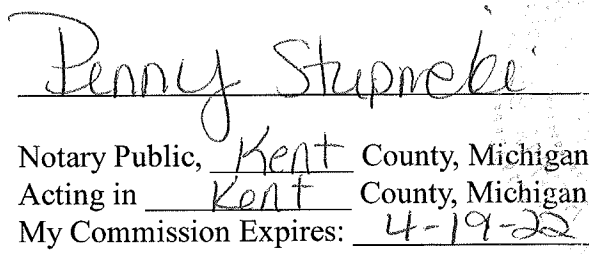 Penny
Notary Public, Kent County, Michigan
Acting in Kent County, Michigan
My Commission Expires: 4-19-22